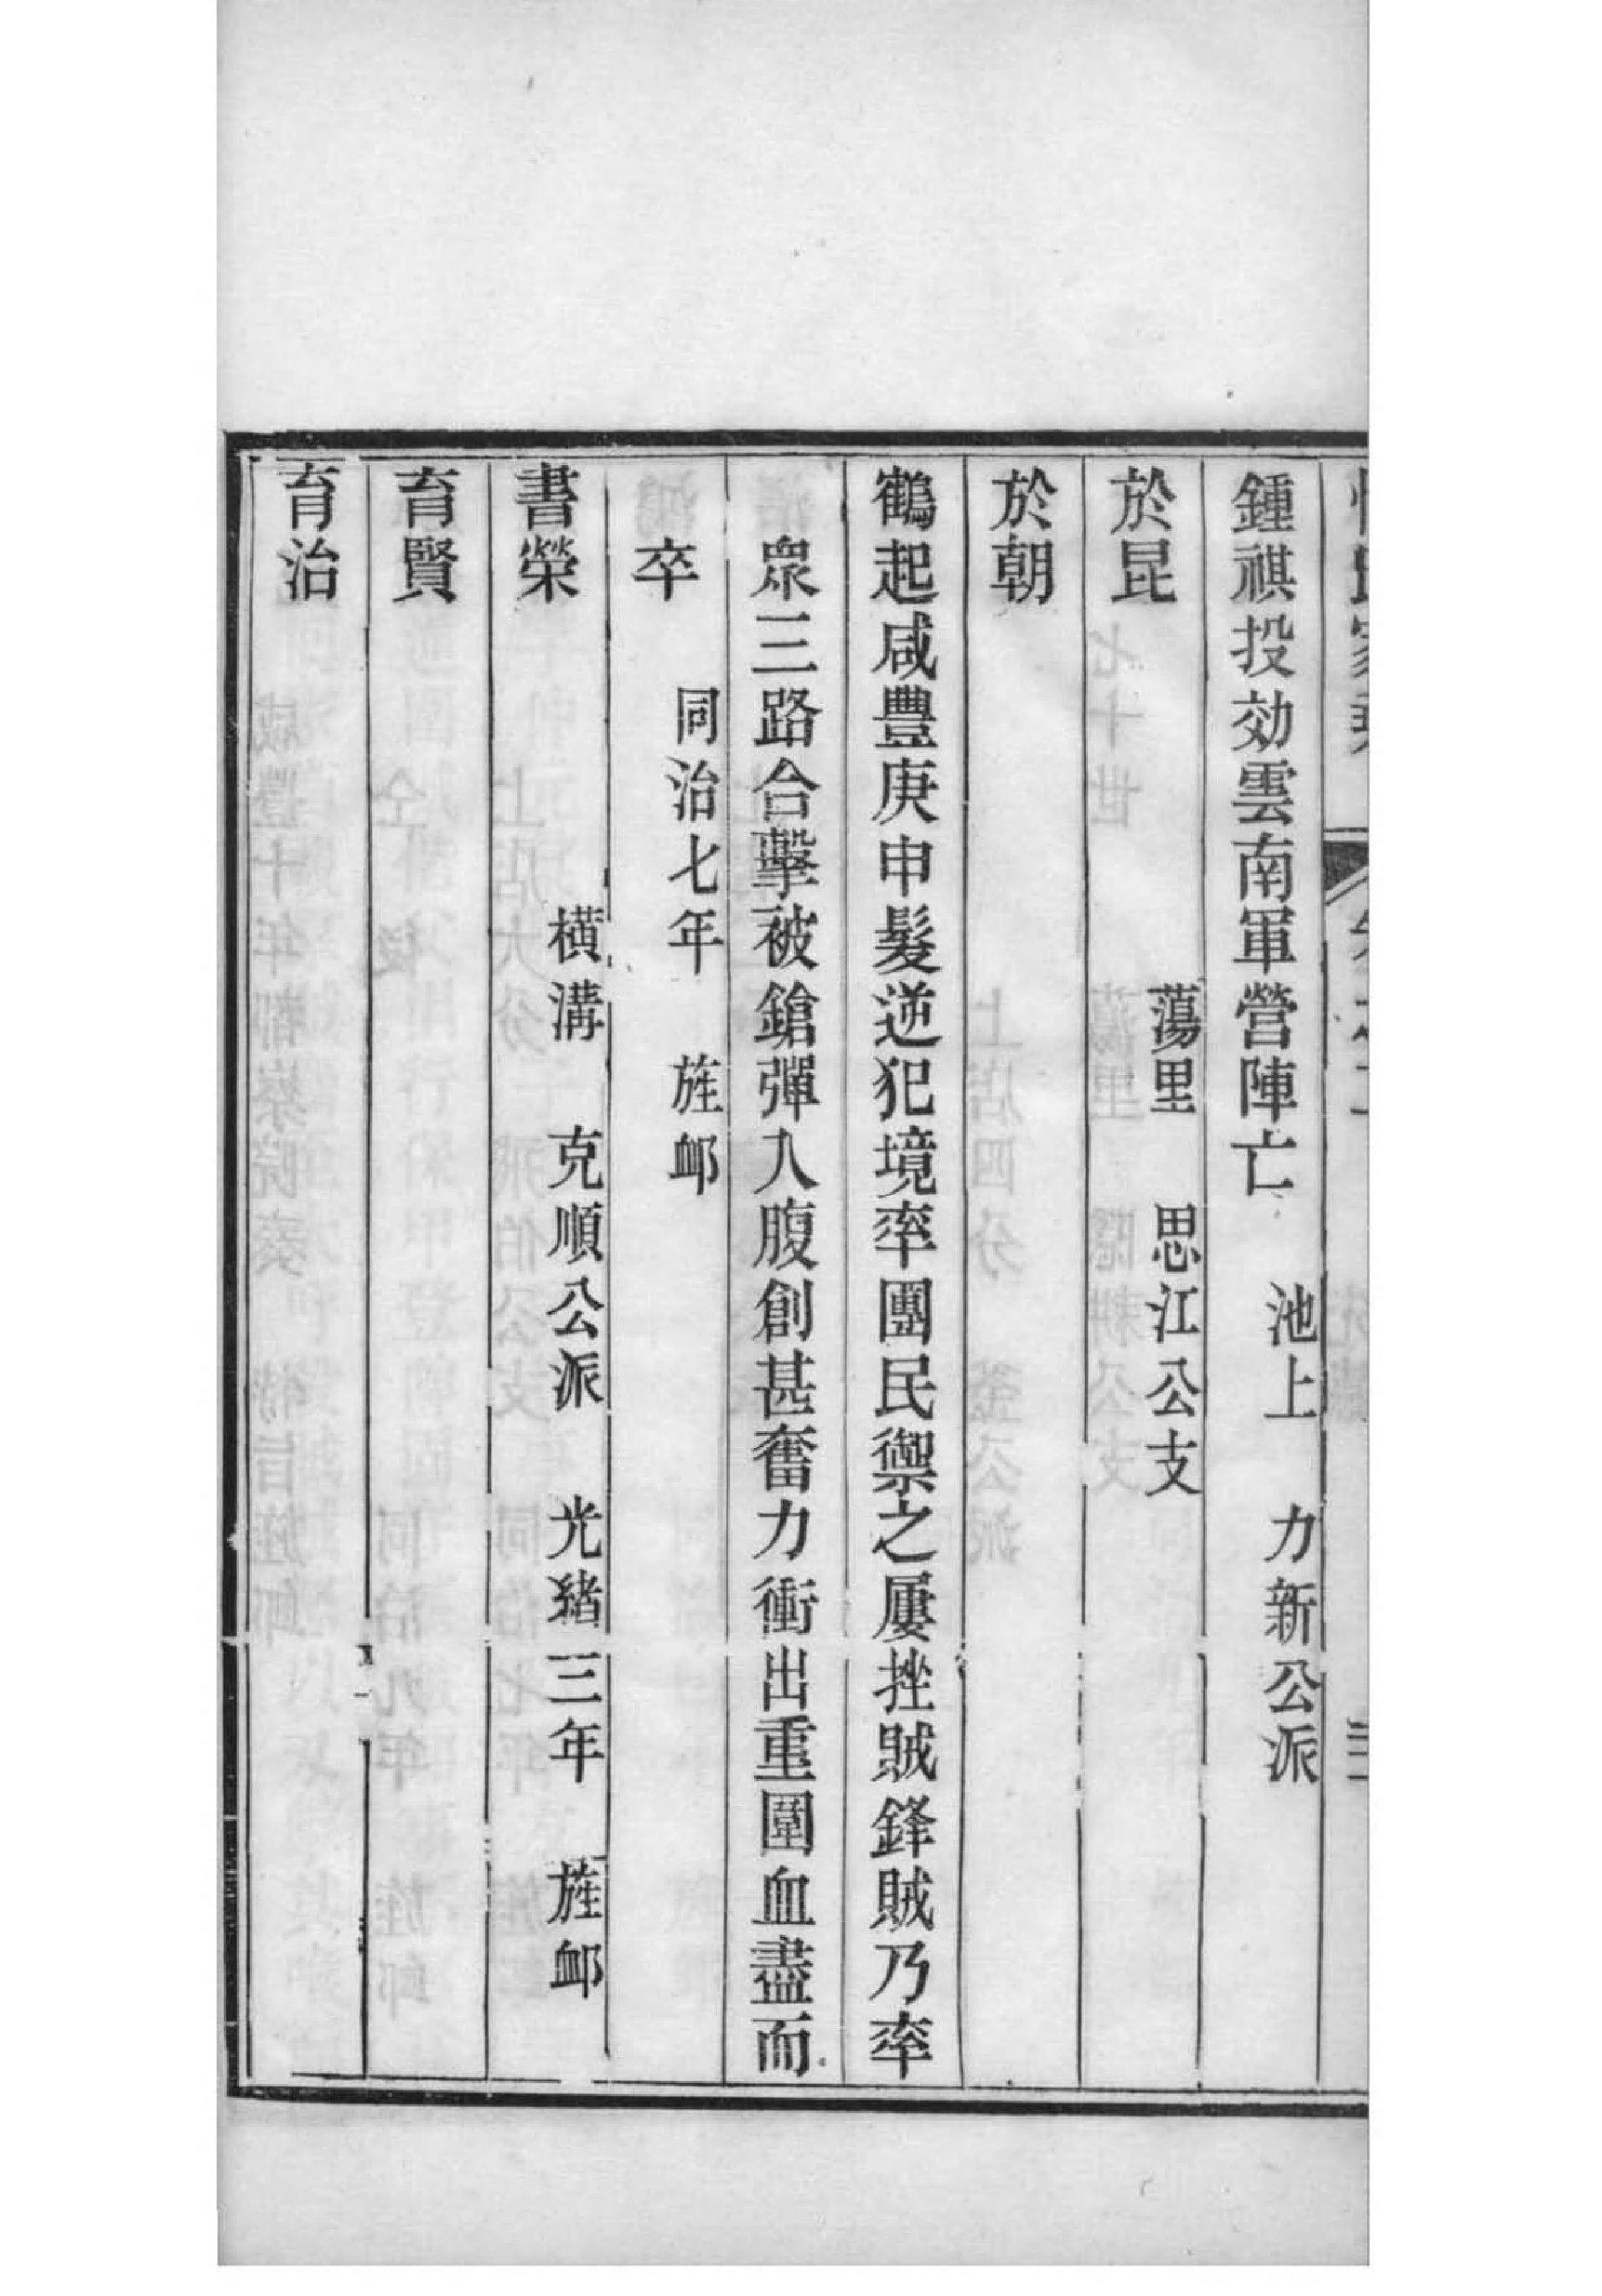 鍾祺投効雲南軍營陣亡 池上 力新公派
於昆 蕩里 思江公支
於朝
鶴起咸豐庚申髮逆犯境率團民禦之屢挫賊鋒賊乃率
衆三路合擊被鎗彈入腹創甚奮力衝出重圍血盡而
卒 同治七年 旌卹
書榮 橫溝 克順公派 光緒三年 旌卹
育賢
育治